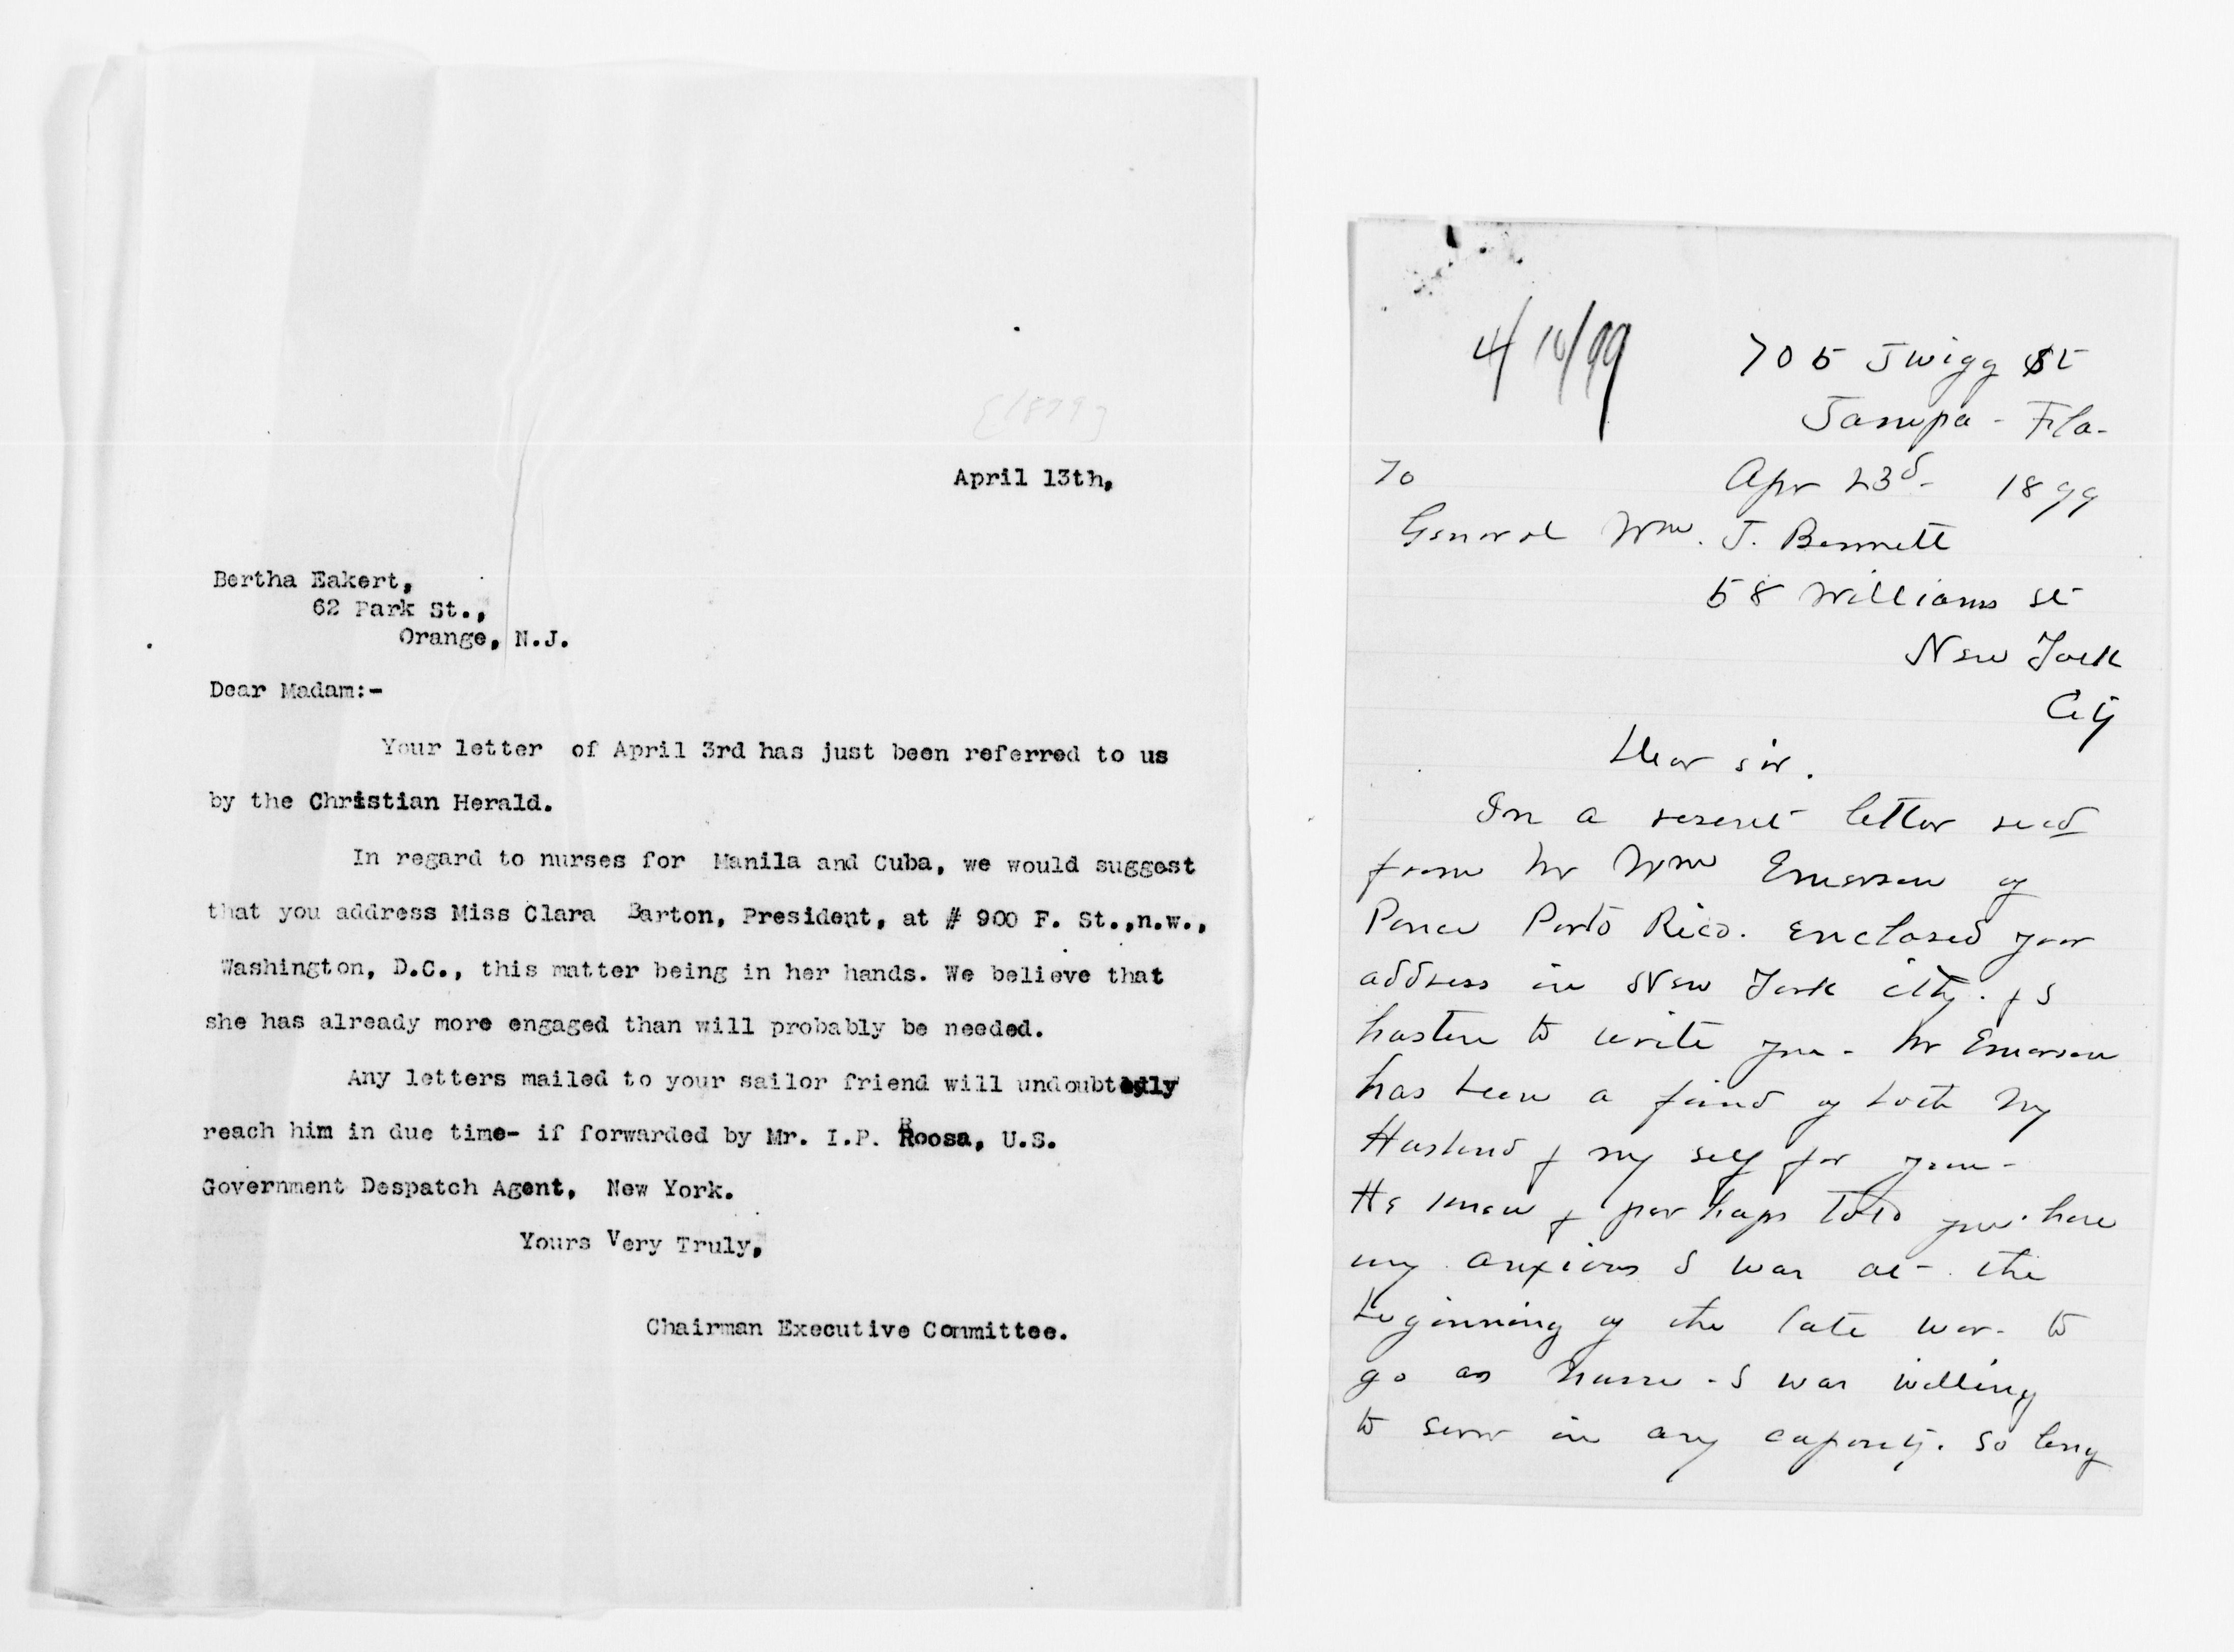 [1899]
April 13th,
Bertha Eakert,
62 Park St.,
Orange, N.J.
Dear Madam:-
Your letter of April 3rd has just been referred to us
by the Christian Herald.
In regard to nurses for Manila and Cuba, we would suggest
that you address Miss Clara Barton, President, at # 900 F. St.,n.w.,
Washington, D.C., this matter being in her hands. We believe that
she has already more engaged than will probably be needed.
Any letters mailed to your sailor friend will undoubtedly
reach him in due time- if forwarded by Mr. I.P. Roosa, U.S.
Government Despatch Agent, New York.
Yours Very Truly,
Chairman Executive Committee.
705 Twigg St
Tampa - Fla-
To
Apr 23d- 1899
General Wm. J. Bennett
58 Williams St
New York
City
Dear sir.
In a resent letter recd
from Mr Wm Emerson of
Ponce Porto Rico. enclosed your
address in New York city. & I
hasten to write you - Mr Emerson
has been a friend of both my
Husband & my self for years -
He knew & perhaps told you how
my anxious I was at - the
beginning of the late war - to
go as nurse - I was willing
to serve in any capacity. so long